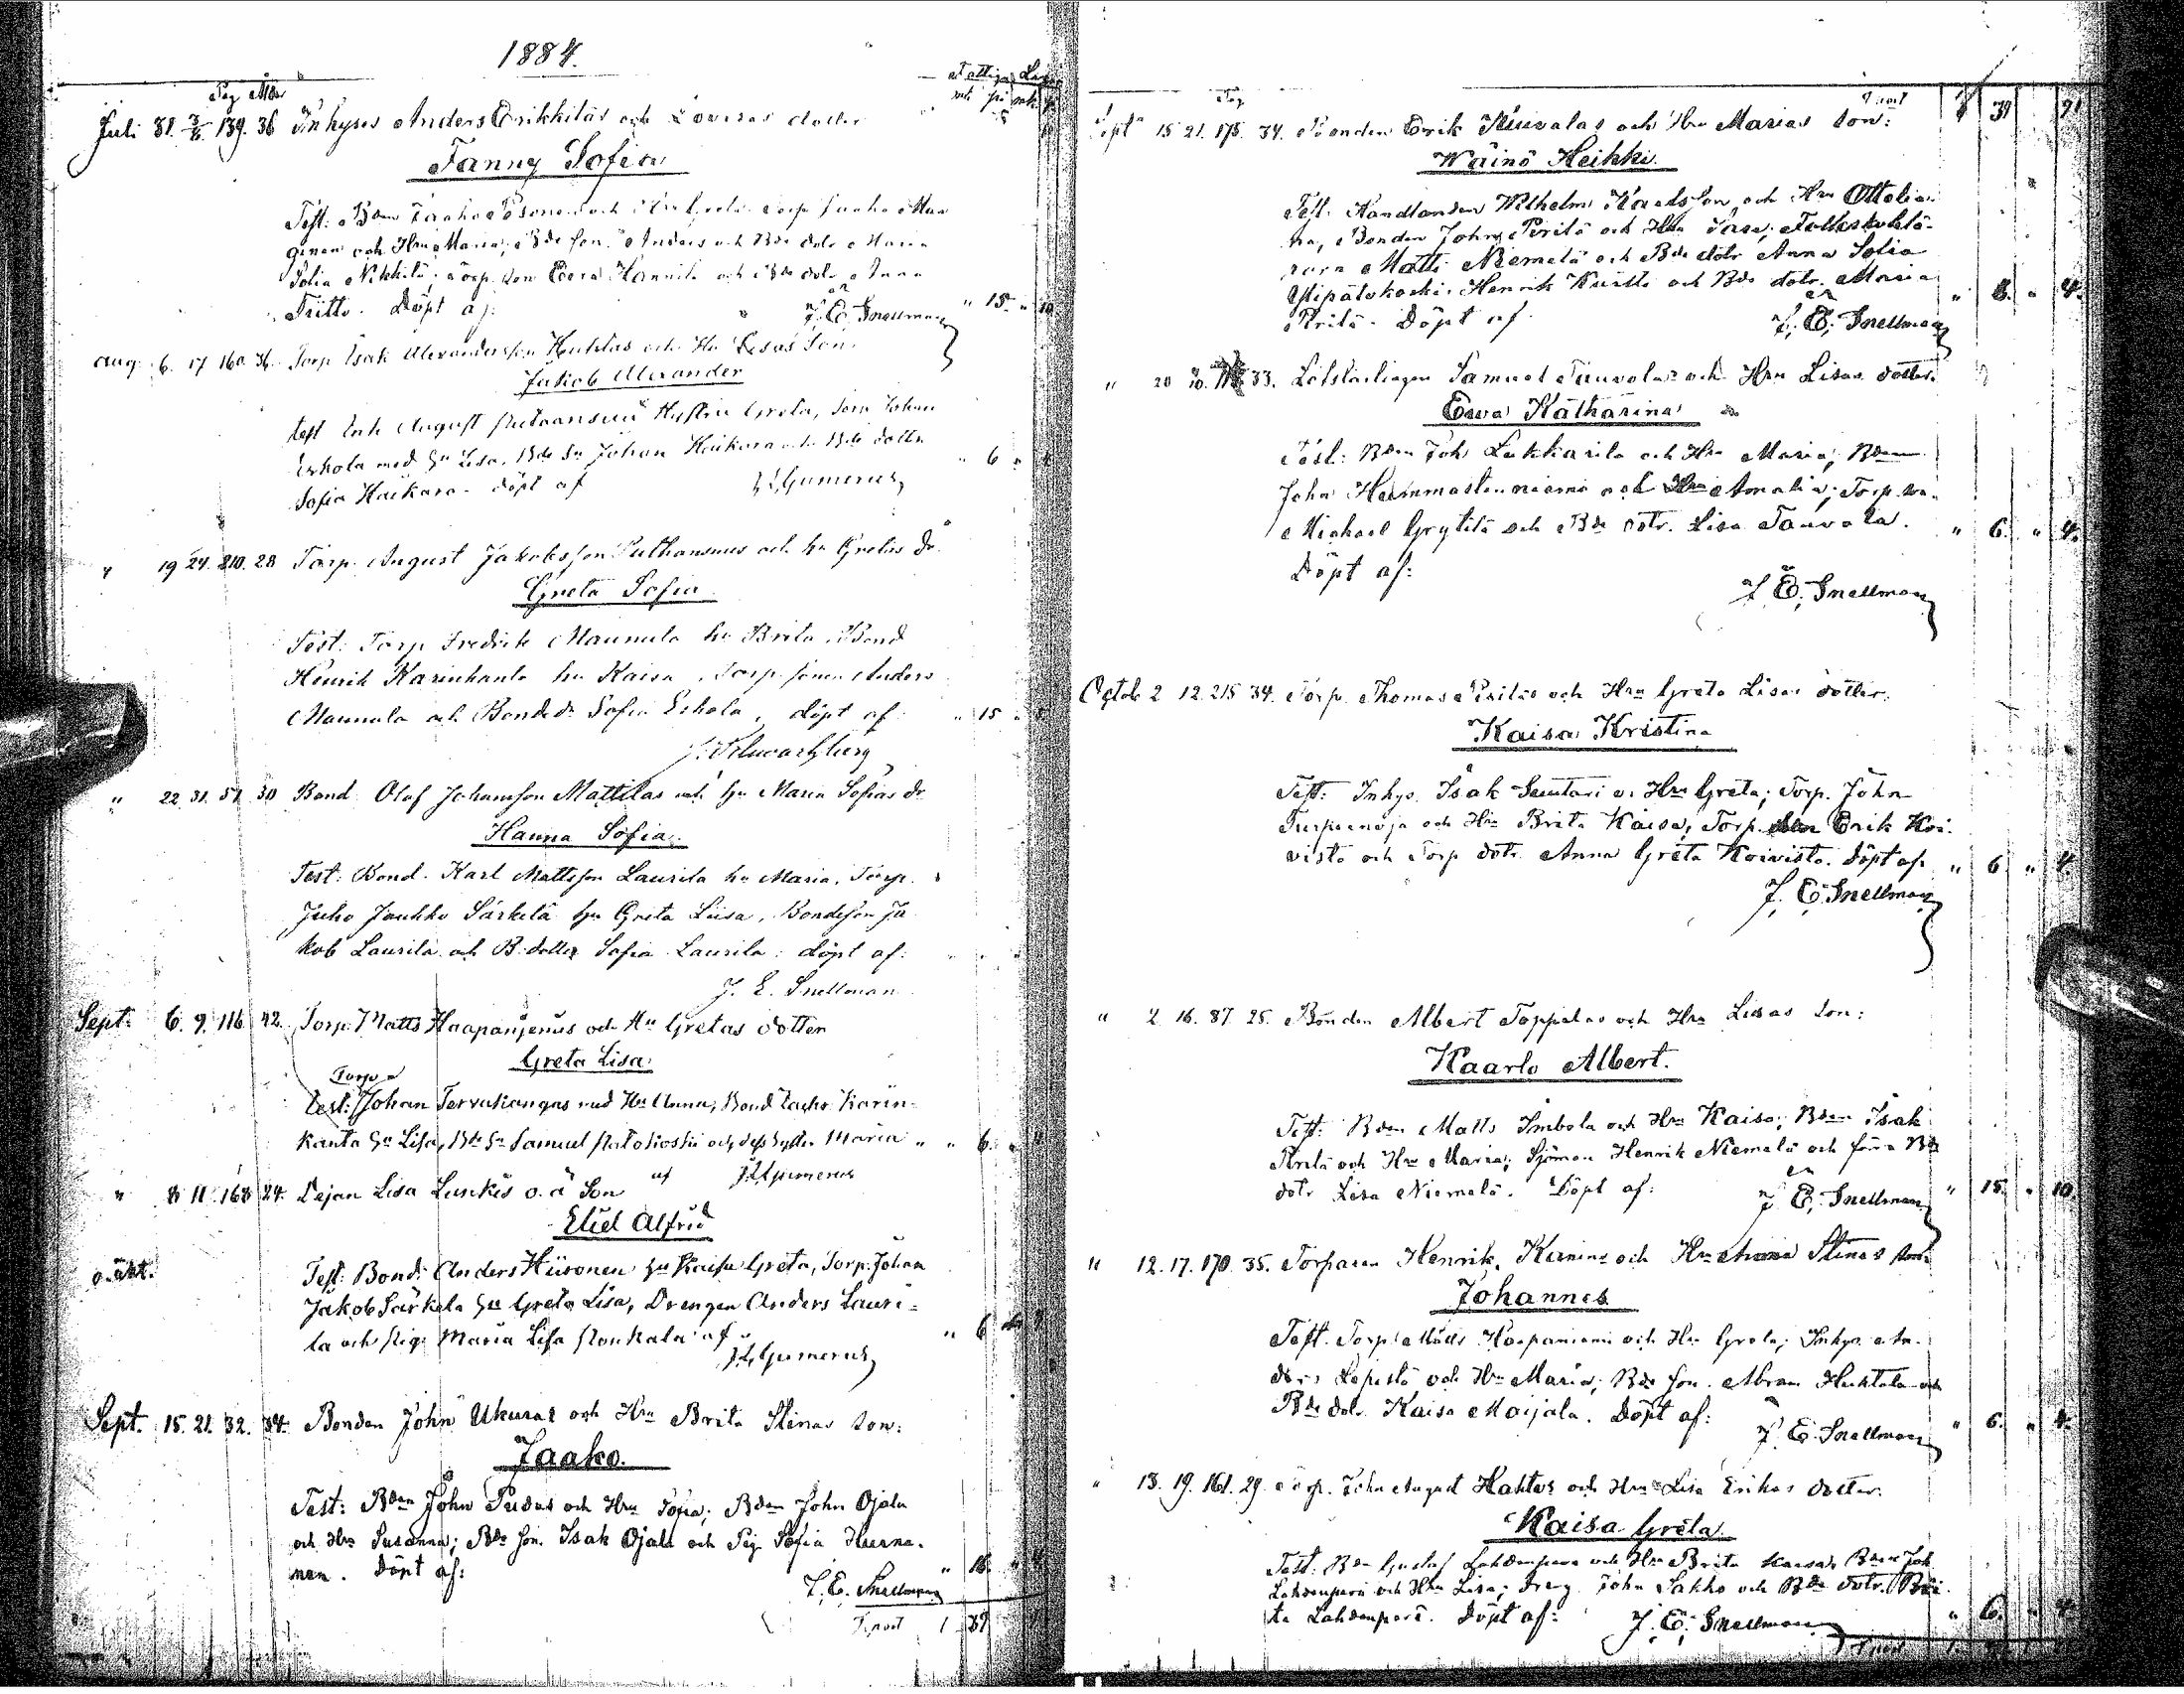 1884.
Pag Mod
Juli 31. 3/8 139. 36 Inhyses Anders Erikkiläs och Lovisas dotter
Fanny Sofia
Test: Bden Jaako Pesonen och Hru Greta Torp Jaako
och Hru Maria; Bde son Anders och Bde dotr Maria
Sofia Nikkilä; Torp. son Hannila och Bde dotr Anna
Döpt af: J. E. Snellman " 15 " 10
Aug. 6. 17 160. 36. Torp Isak Alexandersson Huhtas och Hu Lisas Son
Jakob Alexander
test Enk August Hustru Greta, Torp Johan
Eskola med Hu Lisa, Bde Sn Johan Heikura och Bde dotter
Sofia Heikura. döpt af J.L. Gumerus " 6 "
" 19 24. 210. 28 Torp. August Jakobsson och hu Gretas dr
Greta Sofia
Test: Torp Fredrik Maunula hu Brita, Bond
Henrik Karinkanta hu Kaisa, Torp. sonen Anders
Maunula och Bonde dr Sofia Eskola, döpt af " 15 "
22. 31. 57. 30 Bond. Olof Johansson Mattilas och hu Maria Sofias dr
Hanna Sofia.
Test: Bond. Karl Mattsson Laurila hu Maria, Torp.
Juho Jaakko Särkelä hu Greta Liisa, Bondeson Ja
kob Laurila och B. dotter Sofia Laurila: döpt af:
J. E. Snellman
Sept. 6. 9. 116. 42. Torp. Matts Haapaniemis och Hu Gretas dotter
Greta Lisa
Torp.
test: Johan Tervakangas med Hu Anna, Bond Zachr. Karin-
kanta Hu Lisa, Bde Sn Samuel och dess syster Maria " " 6. "
af J.L. Gumerus
" 8 11. 168 24. Pejan Lisa Lunkis o. ä Son
Eliel Alfrid
o. äkt. Test: Bond: Anders Hiironen Hu Kaisa Greta, Torp. Johan
Jakob Särkelä Hu Greta Lisa, Drengen Anders Lauri-
la och Pig: Maria Lisa af J.L. Gumerus " 6
Sept. 15. 21. 32. 34. Bonden John Ukuras och Hru Brita Stinas son:
Jaako.
Test: Bden John Pudas och Hru Sofia; Bden John Ojala
och Hru Susanna; Bde son. Isak Ojala och Pig Sofia
nen. Döpt af: J. E. Snellman " 15.
Tr. 1 39
Pag 1 39 91
Sept 15 21. 175. 34. Bonden Erik och Hru Marias son:
Wäinö Heikki.
Test. Handlanden Wilhelm Karlsson och Hru Ottolia-
na, Bonden John Peritä och Hru Kaisa; Folkskolelä-
raren Matti Niemelä och Bde dotr Anna Sofia
Ylipätokoski. Henrik Kurtti och Bde dotr. Maria
Peritä. Döpt af J. E. Snellman " 8. " 4.
" 20 33. Lösdrifvaren Samuel Tauvolas och Hru Lisas dotter.
Ewa Katharina
Test: Bden Joh Lukkarila och Hru Maria; Bden
John och Hru Amalia; Torp. son.
Michael Grytilä och Bde dotr. Lisa Tauvola. " 6. " 4.
Döpt af: J E. Snellman
Octob 2 12. 215 34. Torp. Thomas Piriläs och Hru Greta Lisas dotter.
Kaisa Kristina
Test: Inhys. Isak Suutari o. Hru Greta; Torp. John
Turpeenoja och Hru Brita Kaisa, Torp. son Erik Koi-
visto och Torp dotr. Anna Greta Koivisto. Döpt af " 6 " 4
J. E. Snellman
" 2. 16. 87. 25. Bonden Albert Toppilas och Hru Lisas son:
Kaarlo Albert.
Test: Bden Matts Imbola och Hru Kaisa; Bden Isak
Peritä och Hru Maria; Sjöman Henrik Niemelä och förra Bde
dotr Lisa Niemelä. Döpt af: J E. Snellman " 15. " 10.
" 12. 17. 170. 35. Torparen Henrik och Hru Anna Stinas son
Johannes
Test. Torp. Matts Haapaniemi och Hru Greta; Inhys. An-
ders Lepistö och Hru Maria; Bde son. Abram Huhtala och
Bde dotr Kaisa Maijala. Döpt af: J. E. Snellman " 6. " 4.
" 13. 19. 161. 29. Torp. John August Hahtos och Hru Lisa Erikas dotter.
Kaisa Greta.
Test: Bden Gustaf Lahdenperä och Hru Brita Kaisa; Bden Joh
Lahdenperä och Hru Lisa; Dreng John Sakho och Bde dotr. Bri-
ta Lahdenperä. Döpt af: J. E. Snellman " 6. " 4.